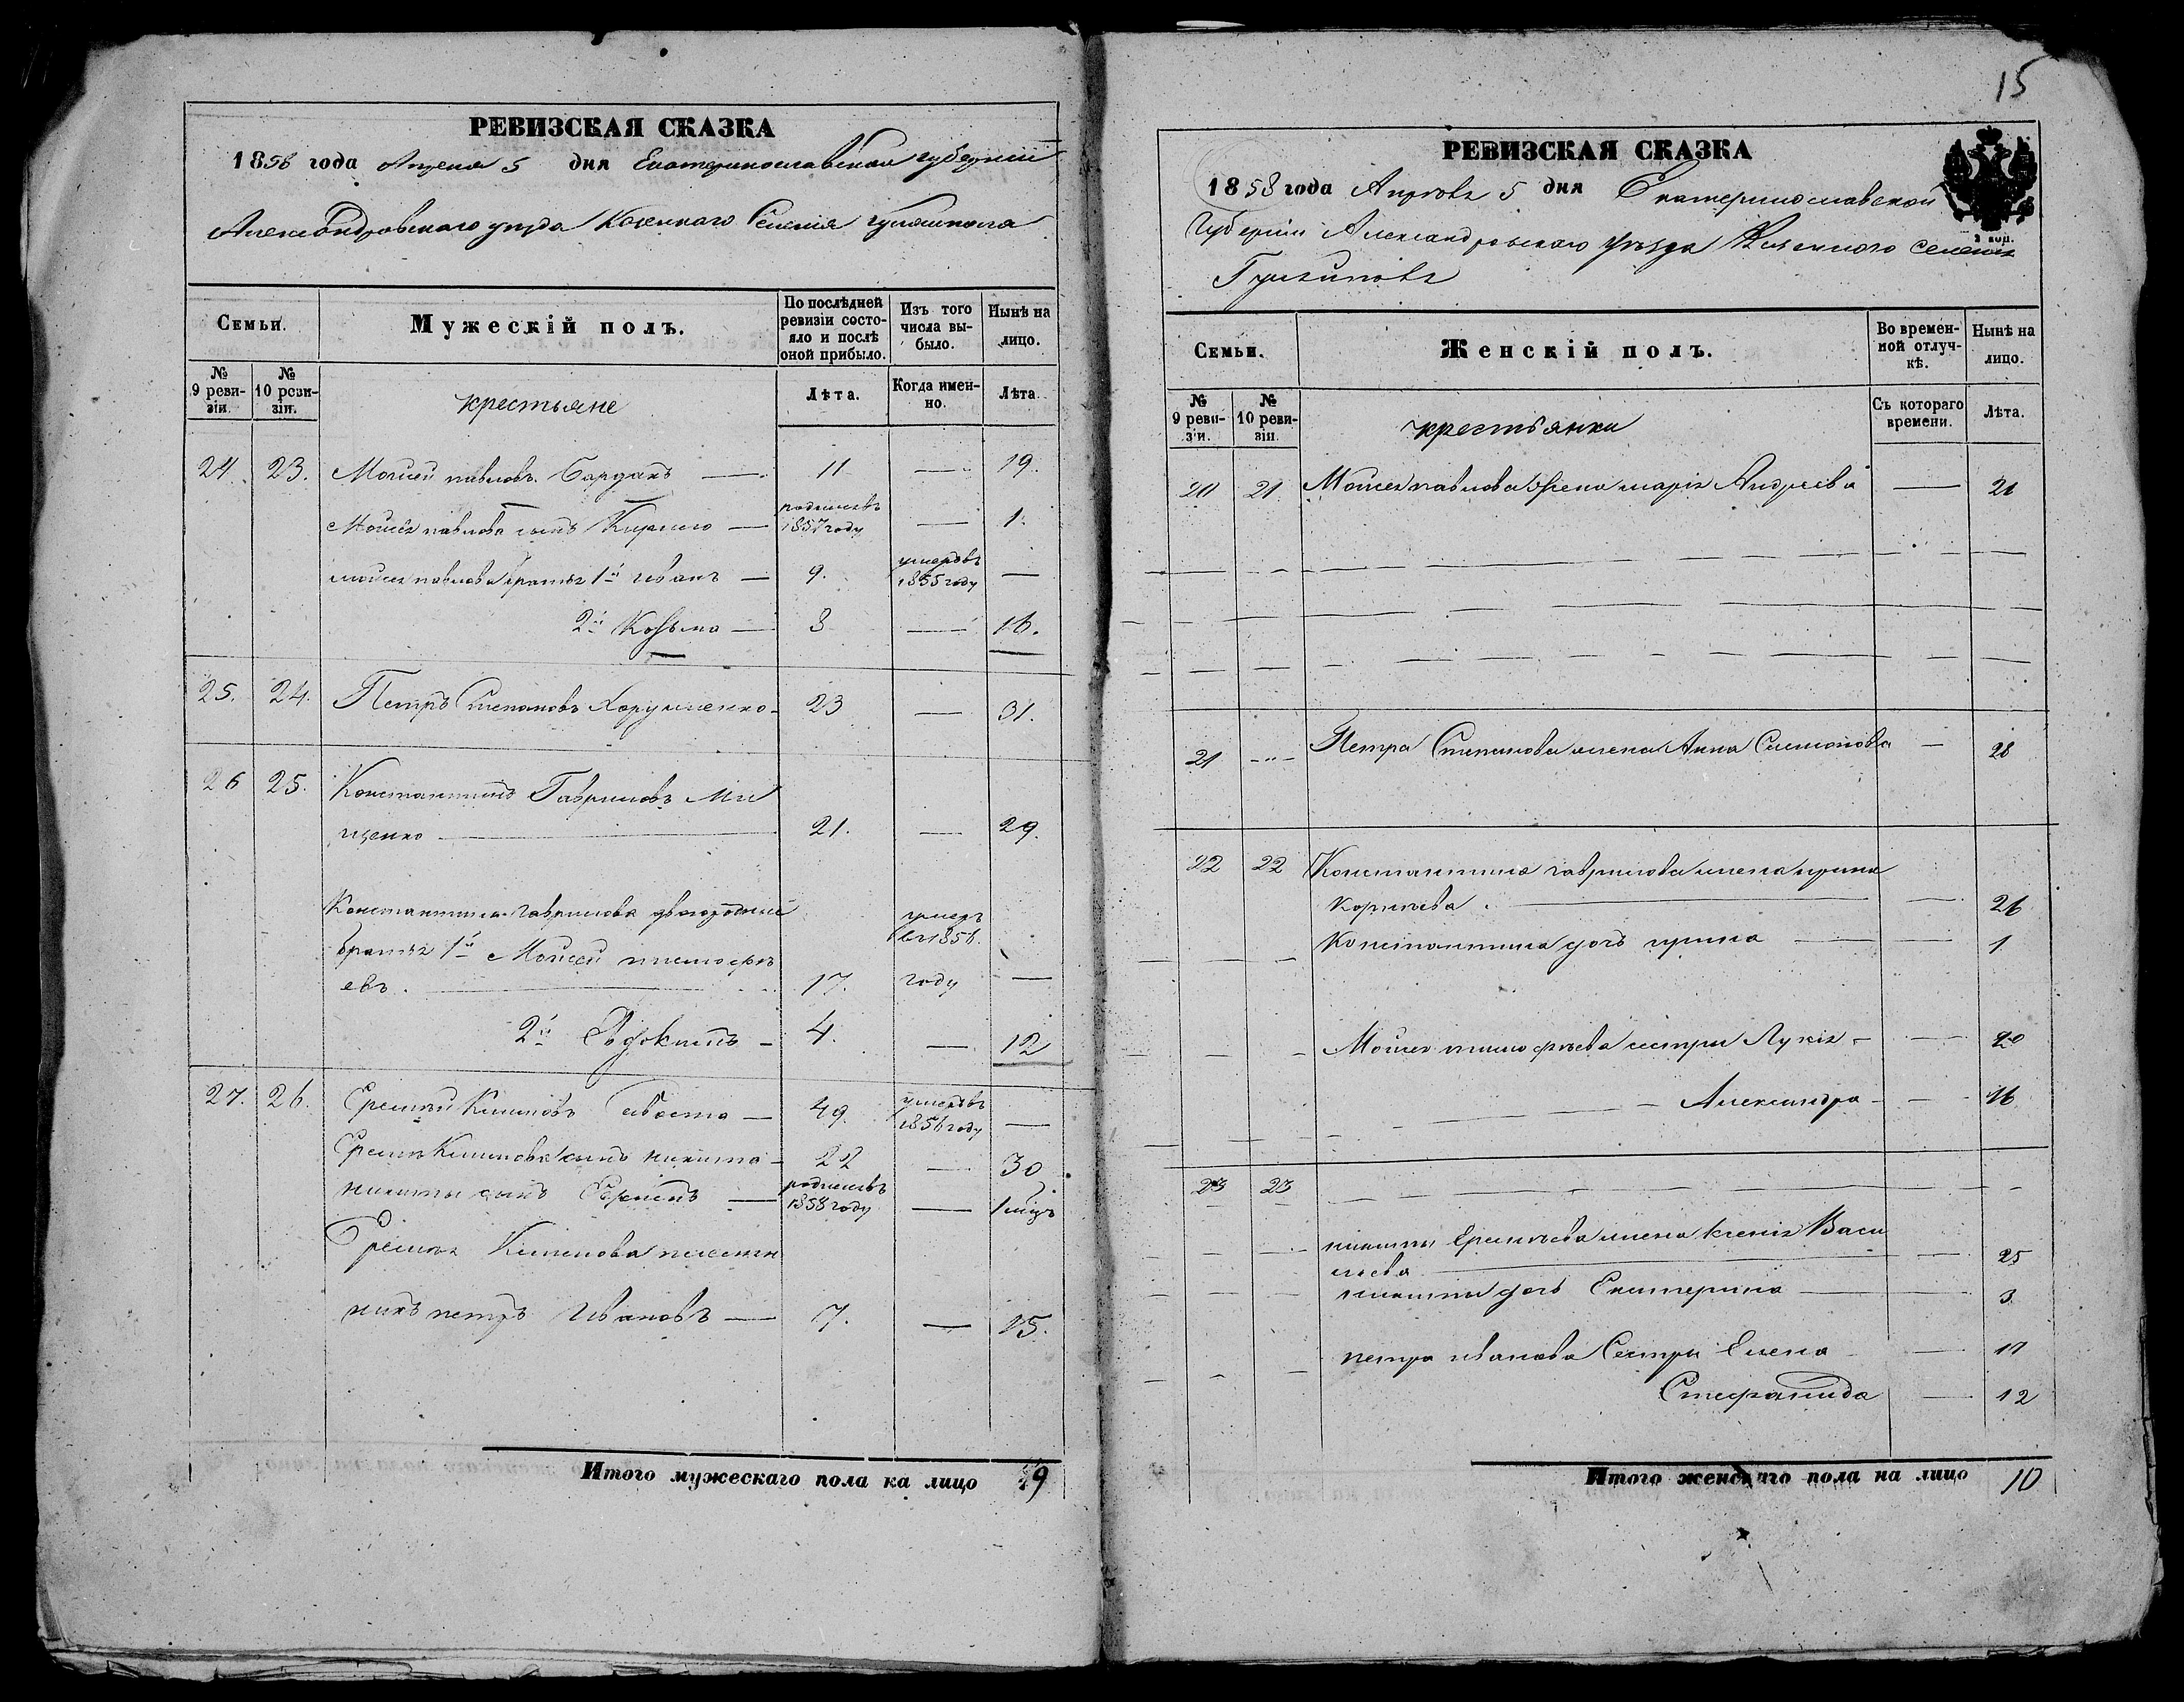 15
РЕВИЗСКАЯ СКАЗКА
1858 года Апреля 5 дня Екатеринославской губернии
Александровского уезда Казенного Селения Гуляйполя
Семьи.
Мужескій полъ.
По послѣдней ревизіи состояло и послѣ оной прибыло.
Изъ того числа выбыло.
Нынѣ на лицо.
№ 9 ревизіи.
№ 10 ревизіи.
крестьяне
Лѣта.
Когда именно.
Лѣта.
24. 23. Моисей павловъ Бардакъ — 11 — 19.
Моисея павлова сынъ Кирило — родился въ 1857 году — 1.
моисея павлова братья 1й иванъ — 9. умеръ въ 1855 году —
2й Козьма — 8 — 16.
25. 24. Петръ Степановъ Харушенко - 23 — 31.
26 25. Константинъ Гавриловъ Ми
щенко — 21. — 29.
Константина гаврилова двоюродные
братья 1й Моисей тимофе
евъ. — 17. умеръ въ 1856. году —
2й Евдокимъ - 4. — 12
27. 26. Еремей Климовъ — 49. умеръ въ 1856 году —
Еремея Климова сынъ никита - 22 — 30
никиты сынъ — родился въ 1858 году — 1 мцъ
Еремея Климова племян
никъ петръ Ивановъ — 7. — 15.
Итого мужескаго пола на лицо 9
РЕВИЗСКАЯ СКАЗКА
1858 года Апреля 5 дня Екатеринославской
Губернии Александровского уезда Казенного селения
Гуляйполя
2 коп.
Семьи.
Женскій полъ.
Во временной отлучкѣ.
Нынѣ на лицо.
№ 9 ревизіи.
№ 10 ревизіи.
крестьянки
Съ котораго времени.
Лѣта.
20 21. Моисея павлова жена мария Андреева — 21
21 -"- Петра Степанова жена Анна Семионова — 28
22 22 Константина гаврилова жена ирина
Корнѣева. — 26
Константина дочь ирина — 1
Моисея тимофѣева сестры Лукия - — 20
Александра - — 16
23 23
никиты Еремѣева жена ксения Васи
льева — 25
никиты дочь Екатерина — 3
петра иванова Сестры Елена — 17
Степанида — 12
Итого женскаго пола на лицо 10